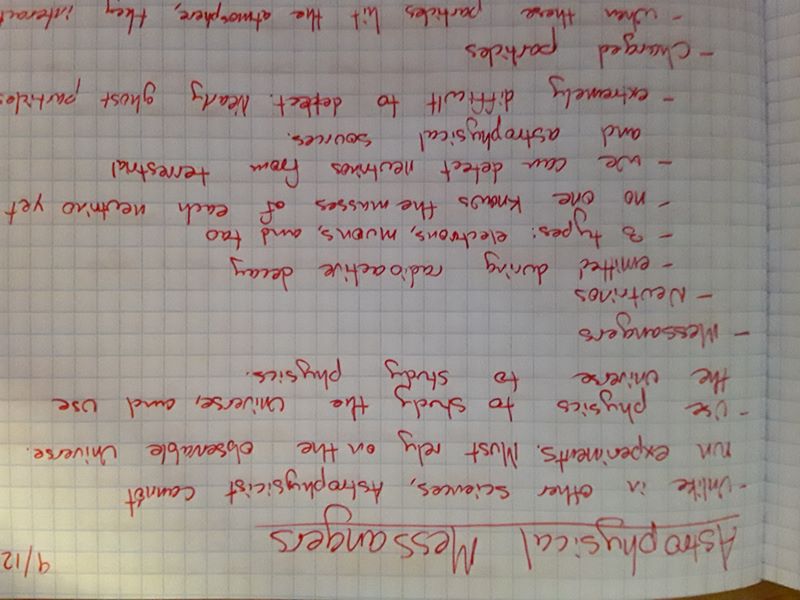 9/12
Astrophysical Messangers
- Unlike in other sciences, Astrophysicist cannot
run experiments. Must rely on the observable universe.
- Use physics to study the universe, and use
the universe to study physics.
- Messangers
- Neutrinos
- emitted during radioactive decay
- 3 types: electrons, muons, and tao
- no one knows the masses of each neutrino yet
- we can detect neutrinos from terrestrial
and astrophysical sources.
- extremely difficult to detect. Nearly ghost particles
- Charged particles
- when these particles hit the atmosphere, they interact